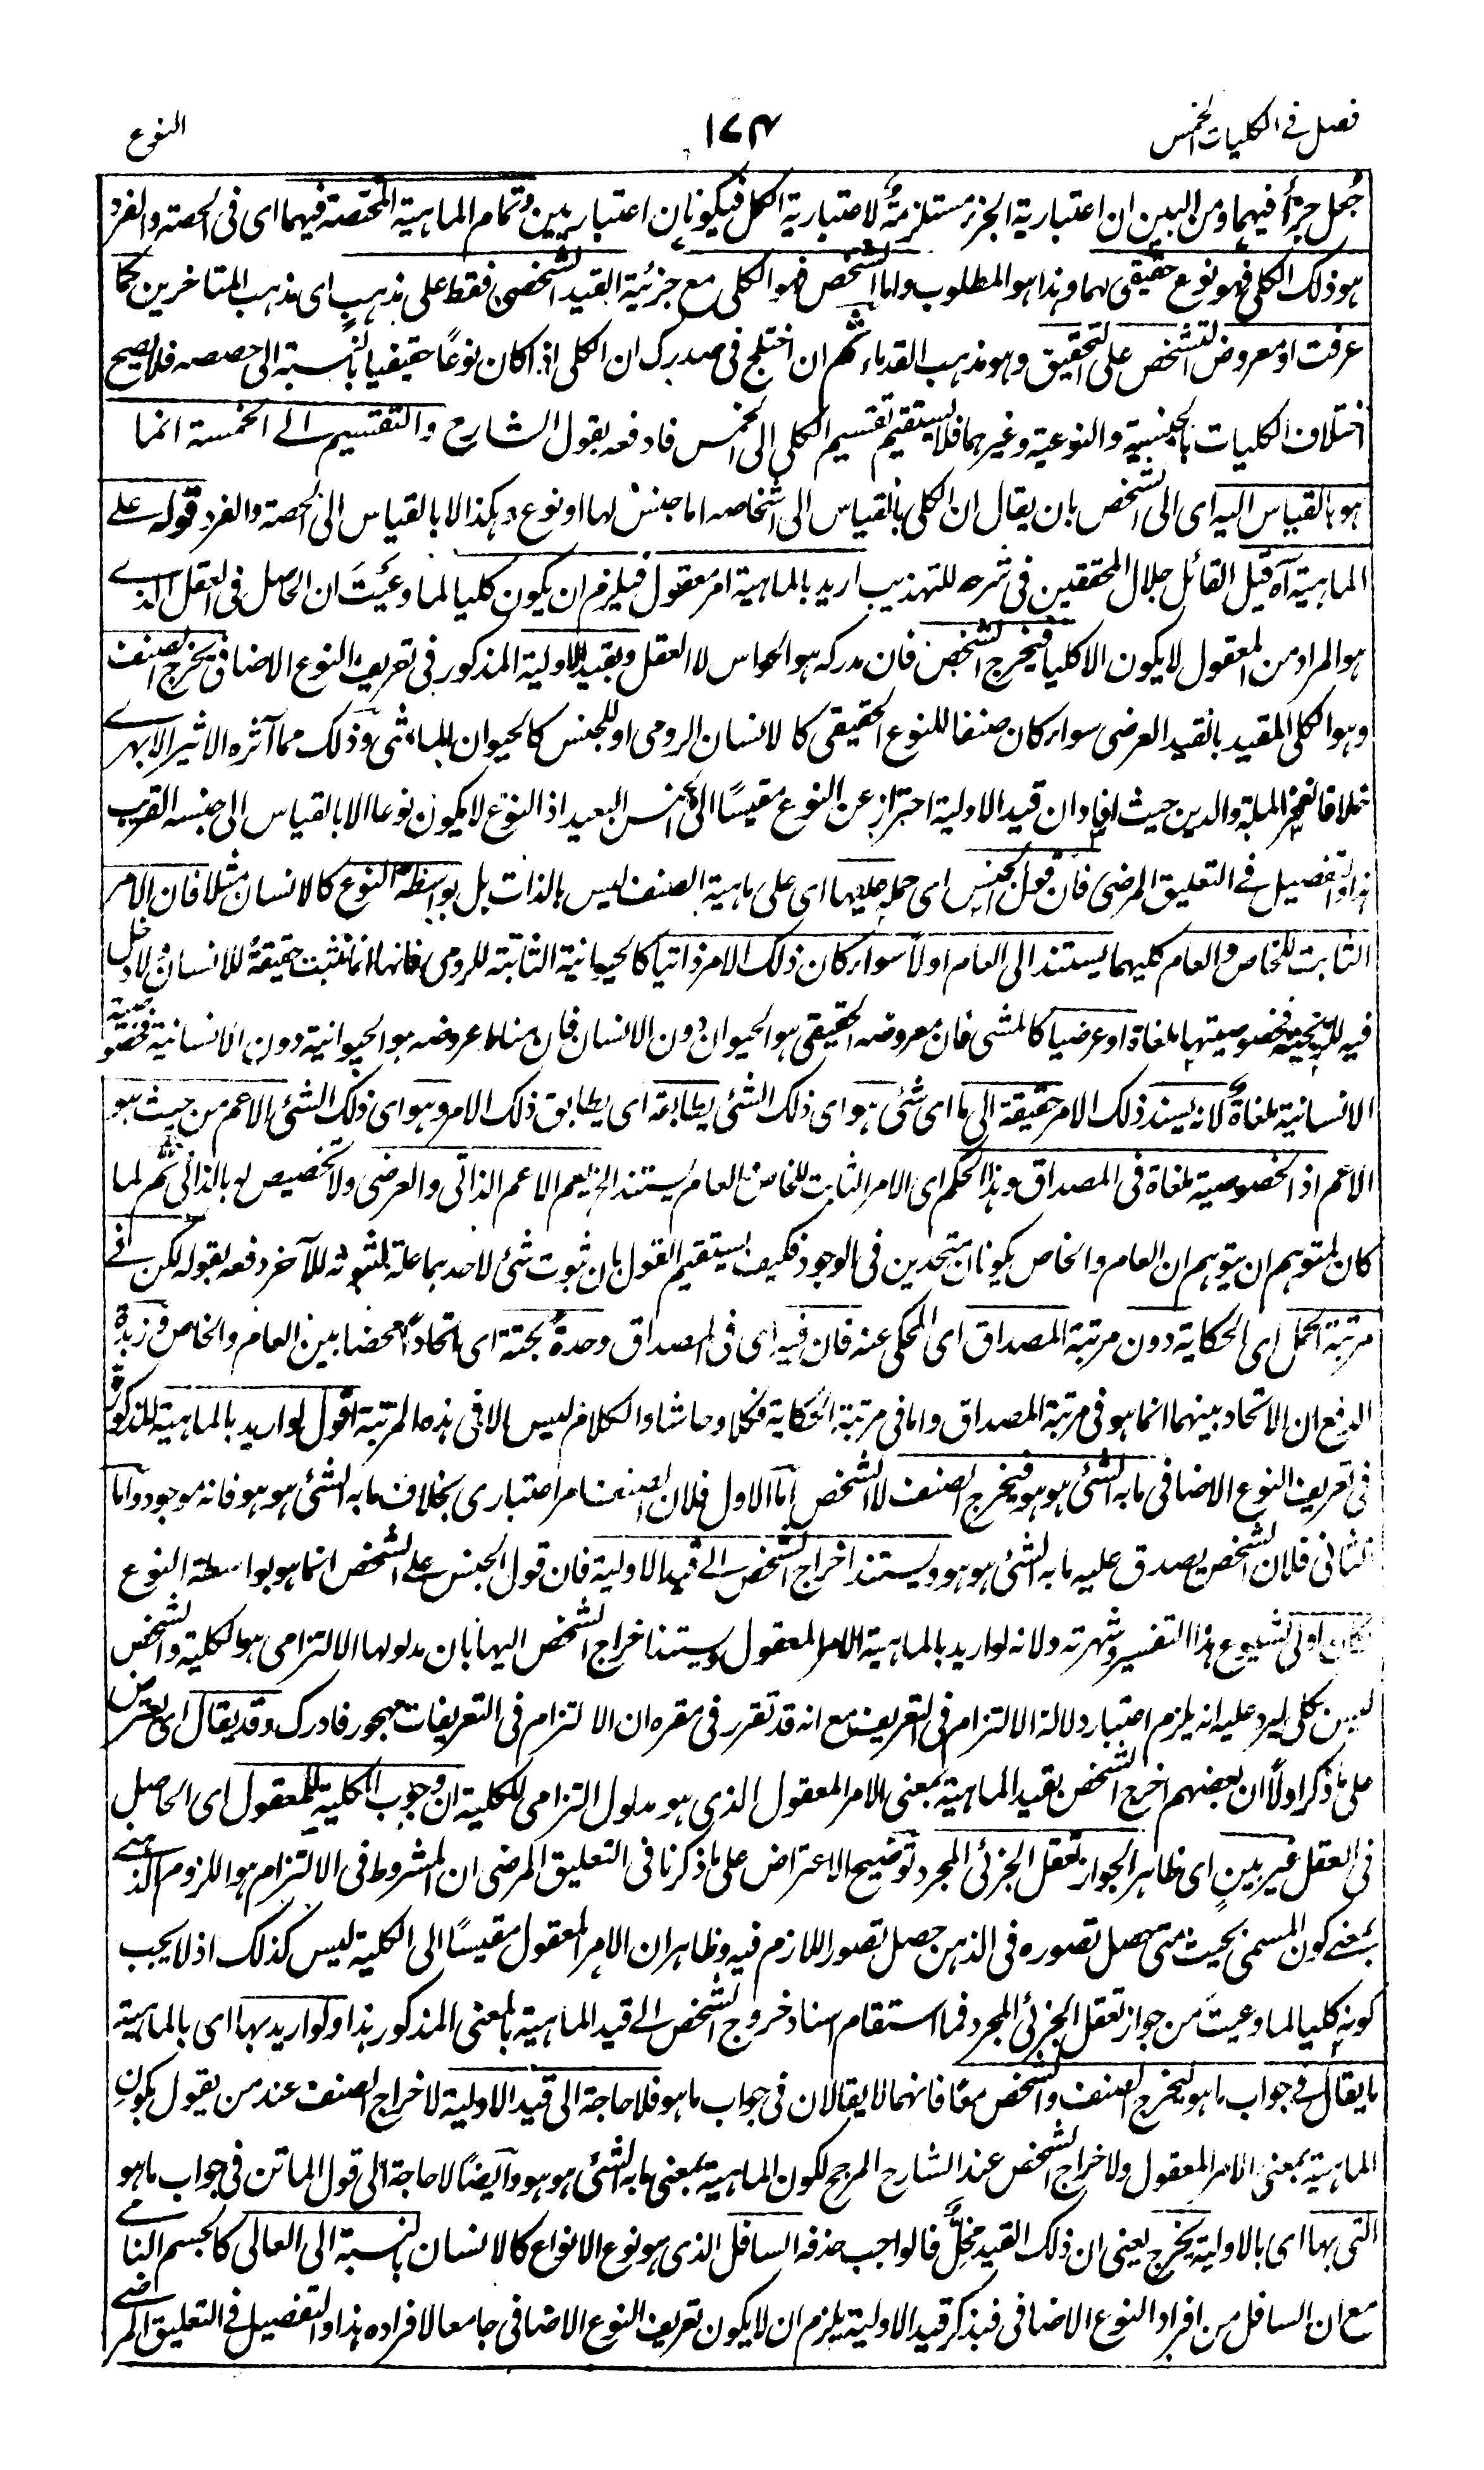 فصل فى الكليات الخمس
١٧٣
النوع
جُعل جزأً فيهما ومن البين ان اعتبارية الجزء مستلزمةٌ لاعتبارية الكل فيكونان اعتباريين وتمام الماهية المختصة فيهما اى فى الحصة والفرد
هو ذلك الكلى فهو نوع حقيقى لهما وهذا هو المطلوب واما الشخص فهو الكلى مع جزئية القيد الشخصى فقط على مذهبٍ اى مذهب المتاخرين كما
عرفت او معروض التشخص على التحقيق وهو مذهب القدماء ثم ان اختلج فى صدرك ان الكلى اذا كان نوعًا حقيقيا بالنسبة الى حصصه فلا يصح
اختلاف الكليات بالجنسية والنوعية وغيرهما فلا يستقيم تقسيم الكلى الى الخمس فادفعه بقول الشارح والتقسيم الے الخمسة انما
هو بالقياس اليه اى الى الشخص بان يقال ان الكلى بالقياس الى اشخاصه اما جنس لها او نوع وهكذا لا بالقياس الى الحصة والفرد قوله علے
الماهية آه قيل القائل جلال المحققين فى شرحه للتهذيب اريد بالماهية امر معقول فيلزم ان يكون كليا لما وعَيتَ ان الحاصل فى العقل الذے
هو المراد من المعقول لا يكون الا كليا فيخرج الشخص فان مدركه هو الحواس لا العقل وبقيد الاولية المذكور فى تعريف النوع الاضافى يخرج الصنف
وهو الكلى المقيد بالقيد العرضى سواء كان صنفا للنوع الحقيقى كالانسان الرومى او للجنس كالحيوان الماشى وذلك مما آثره الاثير الابهرے
خلافا لفخر الملة والدين حيث افاد ان قيد الاولية احتراز عن النوع مقيسًا الى الجنس البعيد اذ النوع لا يكون نوعا الا بالقياس الى جنسه القريب
هذا والتفصيل فے التعليق المرضى فان قول الجنس اى حمله عليها اى على ماهية الصنف ليس بالذات بل بواسطة النوع كالانسان مثلا فان الامر
الثابت للخاص والعام كليهما يستند الى العام اولاً سواء كان ذلك الامر ذاتيا كالحيوانية الثابتة للرومى فانها انما تثبت حقيقةً للانسان لا دخل
فيه للرومية فخصوصيتها ملغاة او عرضيا كالمشى فان معروضه الحقيقى هو الحيوان دون الانسان فان مناط عروضه هو الحيوانية دون الانسانية فخصوصية
الانسانية ملغاةٌ لانه يسند ذلك الامر حقيقة الى ما اى شئ هو اى ذلك الشئ يطابقه اى يطابق ذلك الامر وهو اى ذلك الشئ الاعم من حيث هو
الاعم اذ الخصوصية ملغاة فى المصداق وهذا الحكم اى الامر الثابت للخاص والعام يستند الخ يعم الاعم الذاتى والعرضى ولا تخصيص له بالذاتى ثم لما
كان لمتوهم ان يتوهم ان العام والخاص يكونان متحدين فى الوجود فكيف يستقيم القول بان ثبوت شئ لاحدهما علة لثبوته للآخر دفعه بقوله لكن فے
مرتبة الحمل اى الحكاية دون مرتبة المصداق اى المحكى عنه فان فيه اى فى المصداق وحدةٌ بحتة اى اتحادًا محضا بين العام والخاص فزبدة
الدفع ان الاتحاد بينهما انما هو فى مرتبة المصداق واما فى مرتبة الحكاية فكلا وحاشا والكلام ليس الا فى هذه المرتبة اقول لو اريد بالماهية المذكورة
فى تعريف النوع الاضافى ما به الشئ هو هو فيخرج الصنف لا الشخص اما الاول فلان الصنف امر اعتبارى بخلاف ما به الشئ هو هو فانه موجود واما
الثانى فلان الشخص يصدق عليه ما به الشئ هو هو ويستند اخراج الشخص الے قيد الاولية فان قول الجنس على الشخص انما هو بواسطة النوع
لكان اولى لشيوع هذا التفسير وشهرته ولانه لو اريد بالماهية الامر المعقول ويستند اخراج الشخص اليها بان مدلولها الالتزامى هو الكلية والشخص
ليس بكلى ليرد عليه انه يلزم اعتبار دلالة الالتزام فى التعريف مع انه قد تقرر فى مقره ان الالتزام فى التعريفات مهجور فادرك وقد يقال اى يعترض
على ما ذكر اولاً ان بعضهم اخرج الشخص بقيد الماهية بمعنى الامر المعقول الذى هو مدلول التزامى للكلية ان وجوب الكلية للمعقول اى الحاصل
فى العقل غير بينٍ اى ظاهر الجواز تعقل الجزئى المجرد توضيح الاعتراض على ما ذكرنا فى التعليق المرضى ان المشروط فى الالتزام هو اللزوم الذهنے
بمعنے كون المسمى بحيث متى حصل تصوره فى الذهن حصل تصور اللازم فيه وظاهر ان الامر المعقول مقيسًا الى الكلية ليس كذلك اذ لا يجب
كونه كليا لما وعيتَ من جواز تعقل الجزئى المجرد فما استقام اسناد خروج الشخص الے قيد الماهية بالمعنى المذكور هذا ولو اريد بها اى بالماهية
ما يقال فے جواب ما هو ليخرج الصنف والشخص معًا فانهما لا يقالان فى جواب ما هو فلا حاجة الى قيد الاولية لاخراج الصنف عند من يقول بكون
الماهية بمعنى الامر المعقول ولا خراج الشخص عند الشارح المرجح لكون الماهية بمعنى ما به الشئ هو هو وايضًا لا حاجة الى قول الماتن فى جواب ما هو
التى بها اى بالاولية يخرج يعنى ان ذلك القيد مخلٌّ فالواجب حذفه السافل الذى هو نوع الانواع كالانسان بالنسبة الى العالى كالجسم النامے
مع ان السافل من افراد النوع الاضافى فبذكر قيد الاولية يلزم ان لا يكون تعريف النوع الاضافى جامعا لافراده هذا والتفصيل فے التعليق المرضے